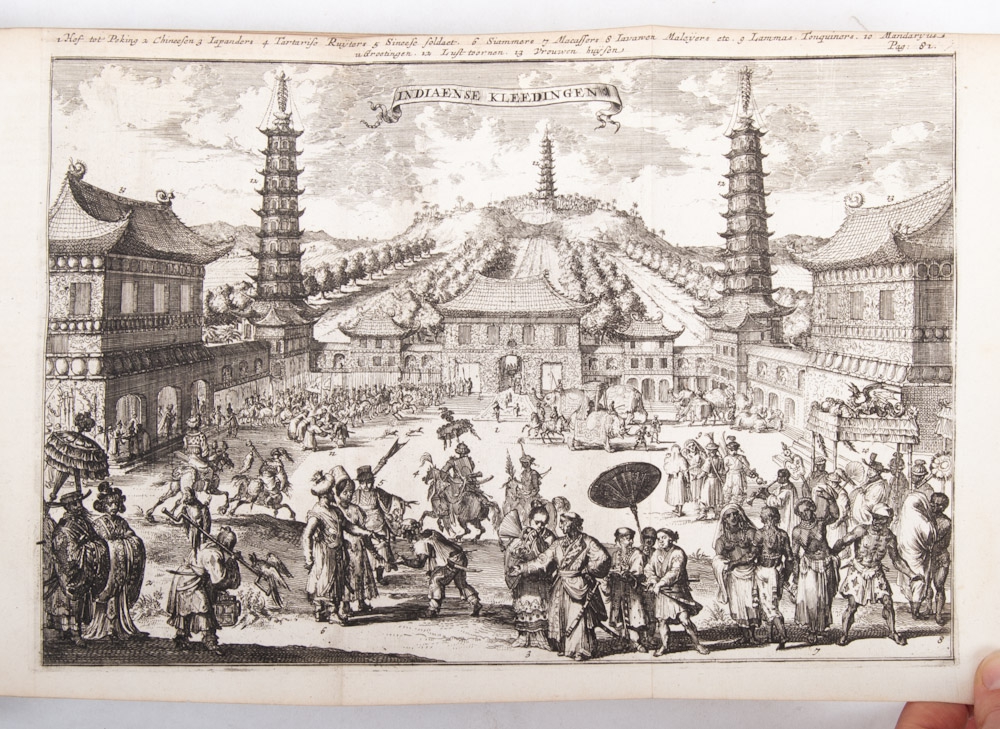 1 Hof tot Peking 2 Chineesen 3 Iapanders. 4 Tartarise Ruyters 5 Sineese soldaet. 6. Siammers 7 Macassers 8 Iavanen Maleyers etc. 9 Lammas. Tonquiners. 10 Mandaryns
11 Groetingen. 12 Lust toornen. 13 Vrouwen huysen
Pag: 82.
INDIAENSE KLEEDINGEN
13
12
12
12
13
11
1
6
3
7
8